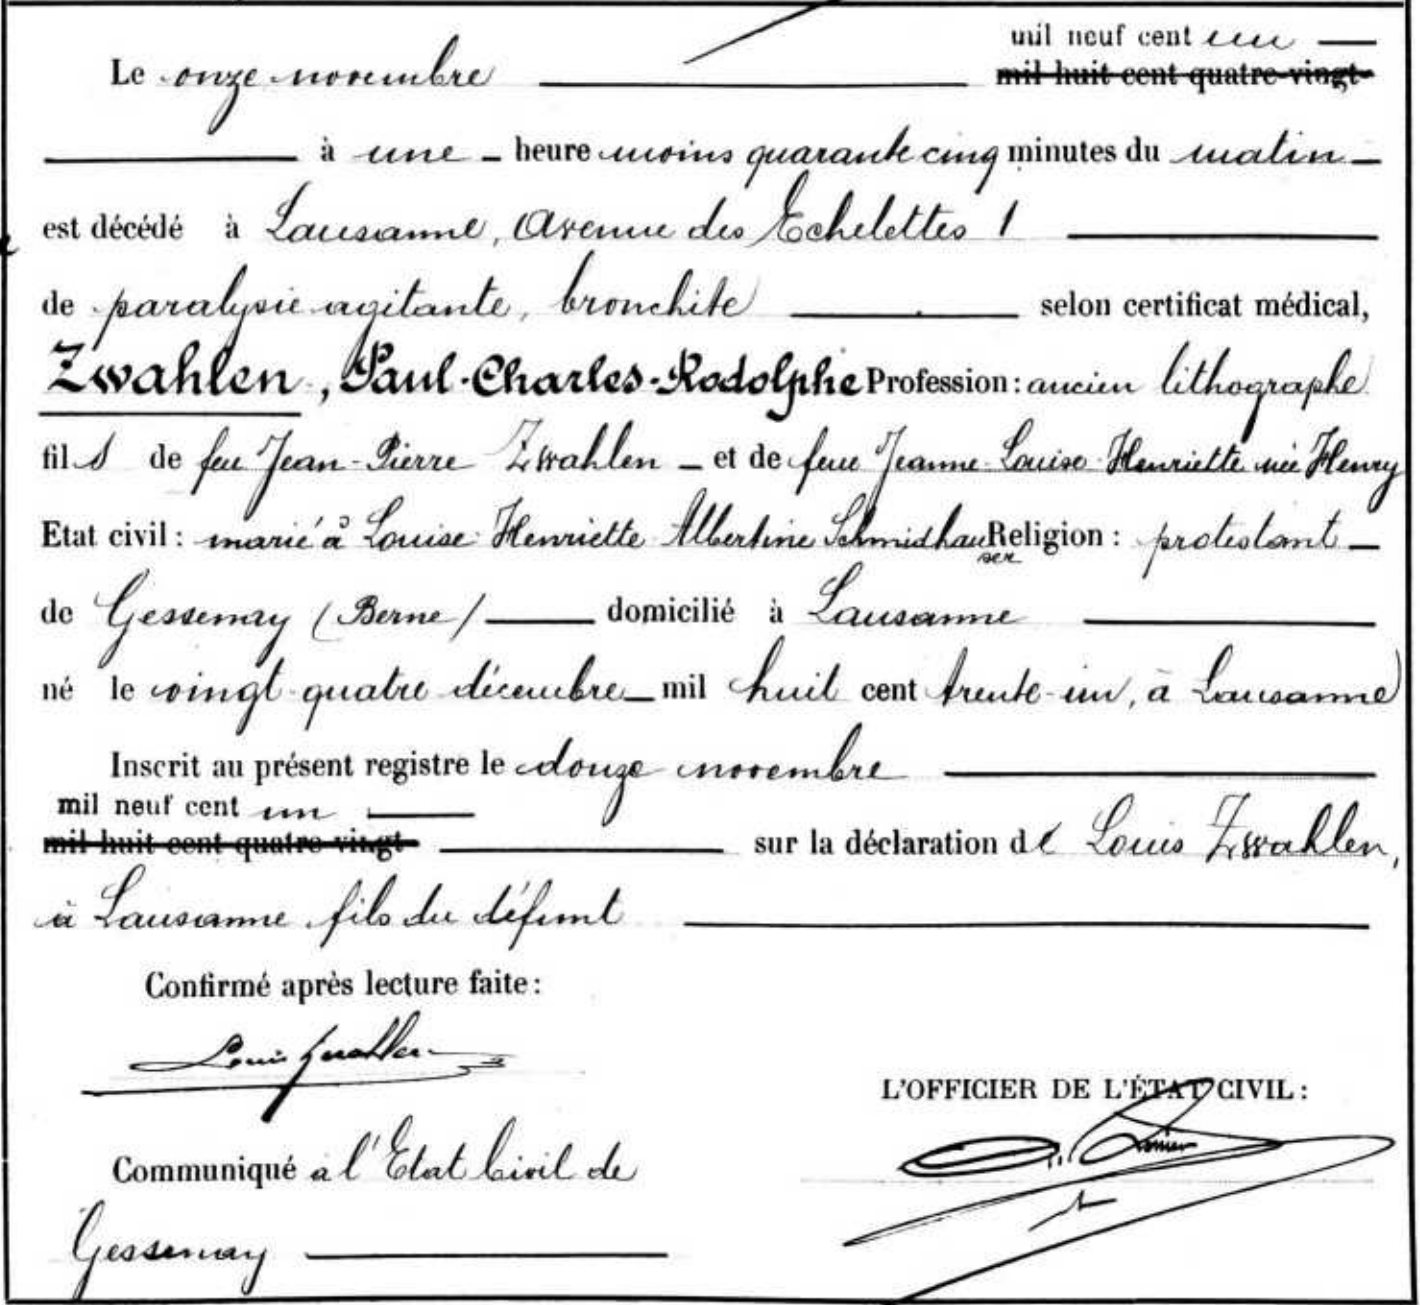 mil neuf cent un
Le onze novembre mil huit cent quatre-vingt-
à une heure moins quarante cinq minutes du matin
est décédé à Lausanne, Avenue des Echelettes 1
de paralysie agitante, bronchite selon certificat médical,
Zwahlen, Paul-Charles-Rodolphe Profession : ancien lithographe
fils de feu Jean-Pierre Zwahlen et de feue Jeanne-Louise-Henriette née Henry
Etat civil : marié à Louise Henriette Albertine Schmidhauser Religion : protestant
de Gessenay (Berne) domicilié à Lausanne
né le vingt-quatre décembre mil huit cent trente-un, à Lausanne
Inscrit au présent registre le douze novembre
mil neuf cent un
mil huit cent quatre-vingt- sur la déclaration de Louis Zwahlen,
à Lausanne fils du défunt
Confirmé après lecture faite :
Louis Zwahlen
L'OFFICIER DE L'ÉTAT CIVIL :
Communiqué à l'Etat Civil de
Gessenay